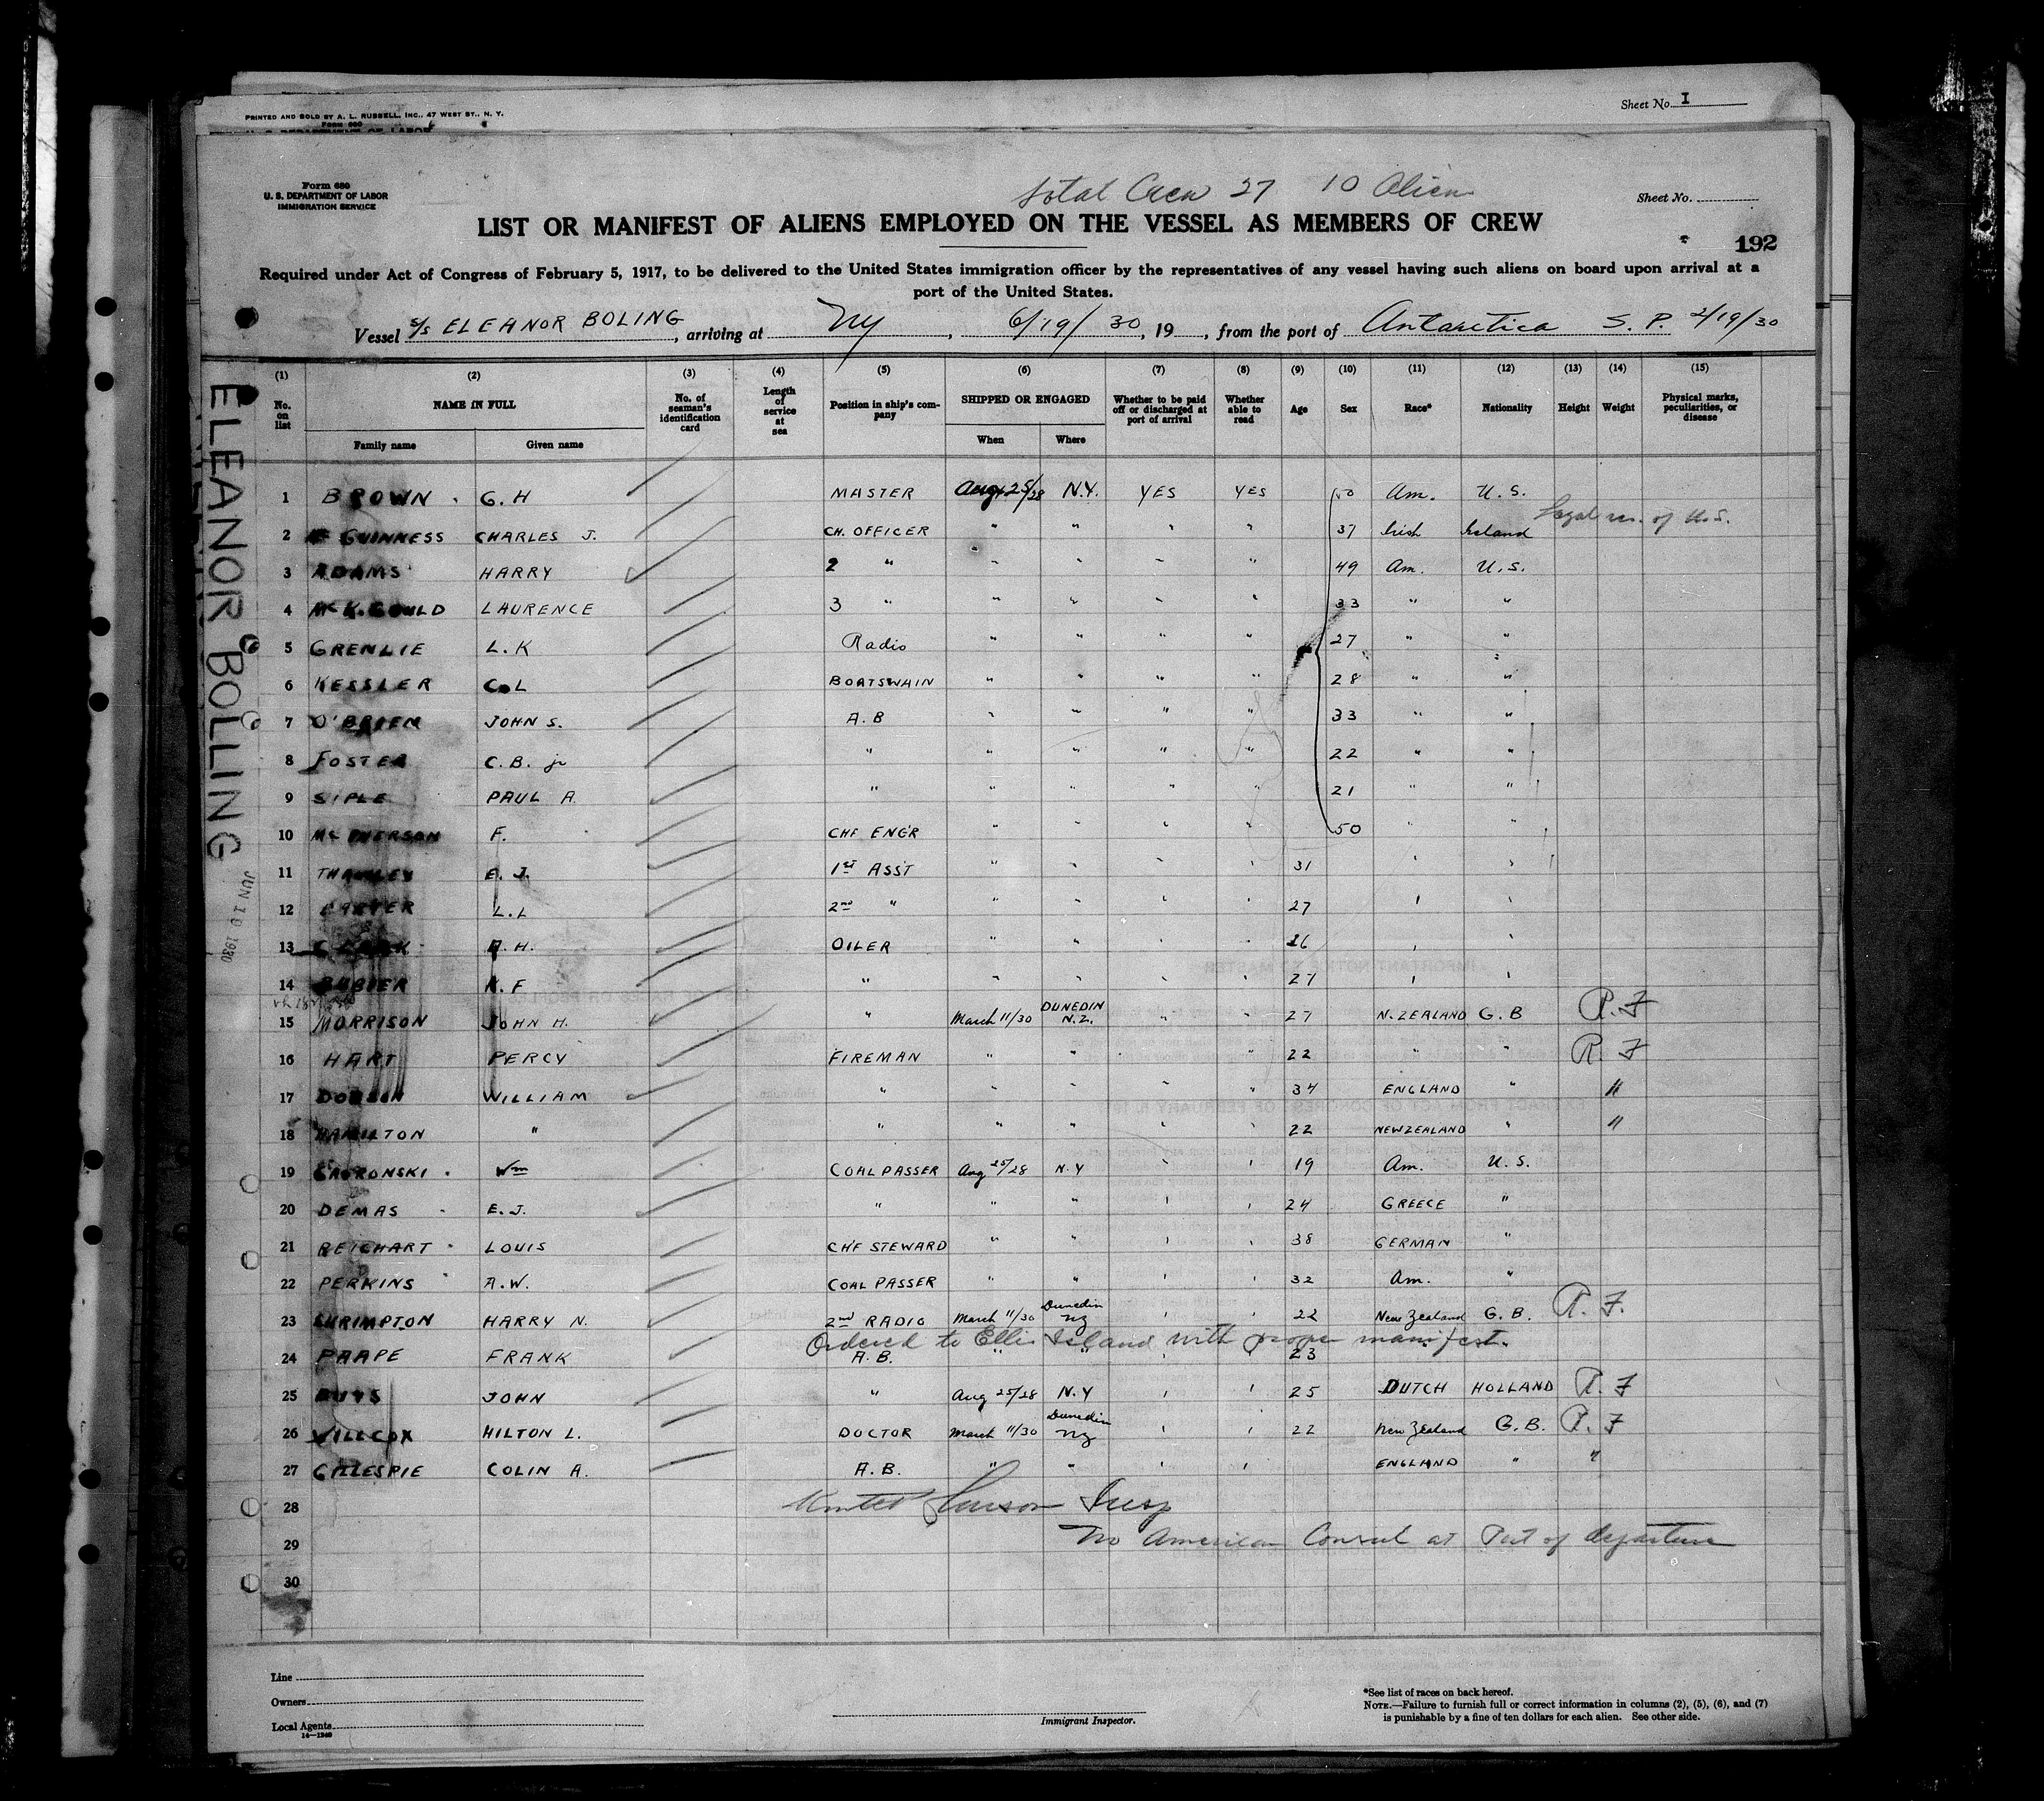 Sheet No. I
PRINTED AND SOLD BY A. L. RUSSELL, INC., 47 WEST ST., N. Y.
Form 680
U. S. DEPARTMENT OF LABOR
Form 680
U. S. DEPARTMENT OF LABOR
IMMIGRATION SERVICE
Total Crew 27 10 Alien
Sheet No.
LIST OR MANIFEST OF ALIENS EMPLOYED ON THE VESSEL AS MEMBERS OF CREW
192
Required under Act of Congress of February 5, 1917, to be delivered to the United States immigration officer by the representatives of any vessel having such aliens on board upon arrival at a
port of the United States.
Vessel S/S ELEANOR BOLING, arriving at NY, 6/19/30, 19, from the port of Antarctica S. P. 2/19/30
(1) (2) (3) (4) (5) (6) (7) (8) (9) (10) (11) (12) (13) (14) (15)
No. on list NAME IN FULL Family name Given name No. of seaman's identification card Length of service at sea Position in ship's company SHIPPED OR ENGAGED When Where Whether to be paid off or discharged at port of arrival Whether able to read Age Sex Race* Nationality Height Weight Physical marks, peculiarities, or disease
1 BROWN G. H MASTER Aug 25/28 N.Y. YES YES 50 Am. U. S.
2 Mc GUINNESS CHARLES J. CH. OFFICER " " " " 37 Irish Ireland Legal res. of U.S.
3 ADAMS HARRY 2 " " " " " 49 Am. U. S.
4 McK. GOULD LAURENCE 3 " " " " " 33 " "
5 GRENLIE L. K Radio " " " " 27 " "
6 KESSLER C. L BOATSWAIN " " " " 28 " "
7 O'BRIEN JOHN S. A. B " " " " 33 " "
8 FOSTER C. B. jr " " " " " 22 " "
9 SIPLE PAUL A. " " " " " 21 " "
10 McPHERSON F. CHF ENGR " " " " 50 " "
11 E. J. 1st ASST " " " " 31 " "
12 L. L 2nd " " " " " 27 " "
13 CLARK A. H. OILER " " " " 26 " "
14 BUBIER K. F " " " " " 27 " "
15 MORRISON JOHN H. " March 11/30 DUNEDIN N.Z. " " 27 N. ZEALAND G. B R. F
16 HART PERCY FIREMAN " " " " 22 " " R. F
17 DOBSON WILLIAM " " " " " 34 ENGLAND " "
18 HAMILTON " " " " " " 22 NEW ZEALAND " "
19 GAVRONSKI Wm COAL PASSER Aug 25/28 N.Y " " 19 Am. U. S.
20 DEMAS E. J. " " " " " 24 GREECE "
21 REICHART LOUIS CHF STEWARD " " " " 38 GERMAN "
22 PERKINS A. W. COAL PASSER " " " " 32 Am. "
23 SHRIMPTON HARRY N. 2nd RADIO March 11/30 Dunedin NZ " " 22 New Zealand G. B. R. F.
Ordered to Ellis Island with proper manifest.
24 PAAPE FRANK A. B. " " " " 23 "
25 BUYS JOHN " Aug 25/28 N.Y " " 25 DUTCH HOLLAND R. F
26 WILLCOX HILTON L. DOCTOR March 11/30 Dunedin NZ " " 22 New Zealand G. B. R. F
27 GILLESPIE COLIN A. A. B. " " " " ENGLAND " "
28 Insp
29 No American Consul at Port of departure
30
ELEANOR BOLLING
JUN 19 1930
Line
Owners
Local Agents
14—1240
Immigrant Inspector.
*See list of races on back hereof.
NOTE.—Failure to furnish full or correct information in columns (2), (5), (6), and (7)
is punishable by a fine of ten dollars for each alien. See other side.